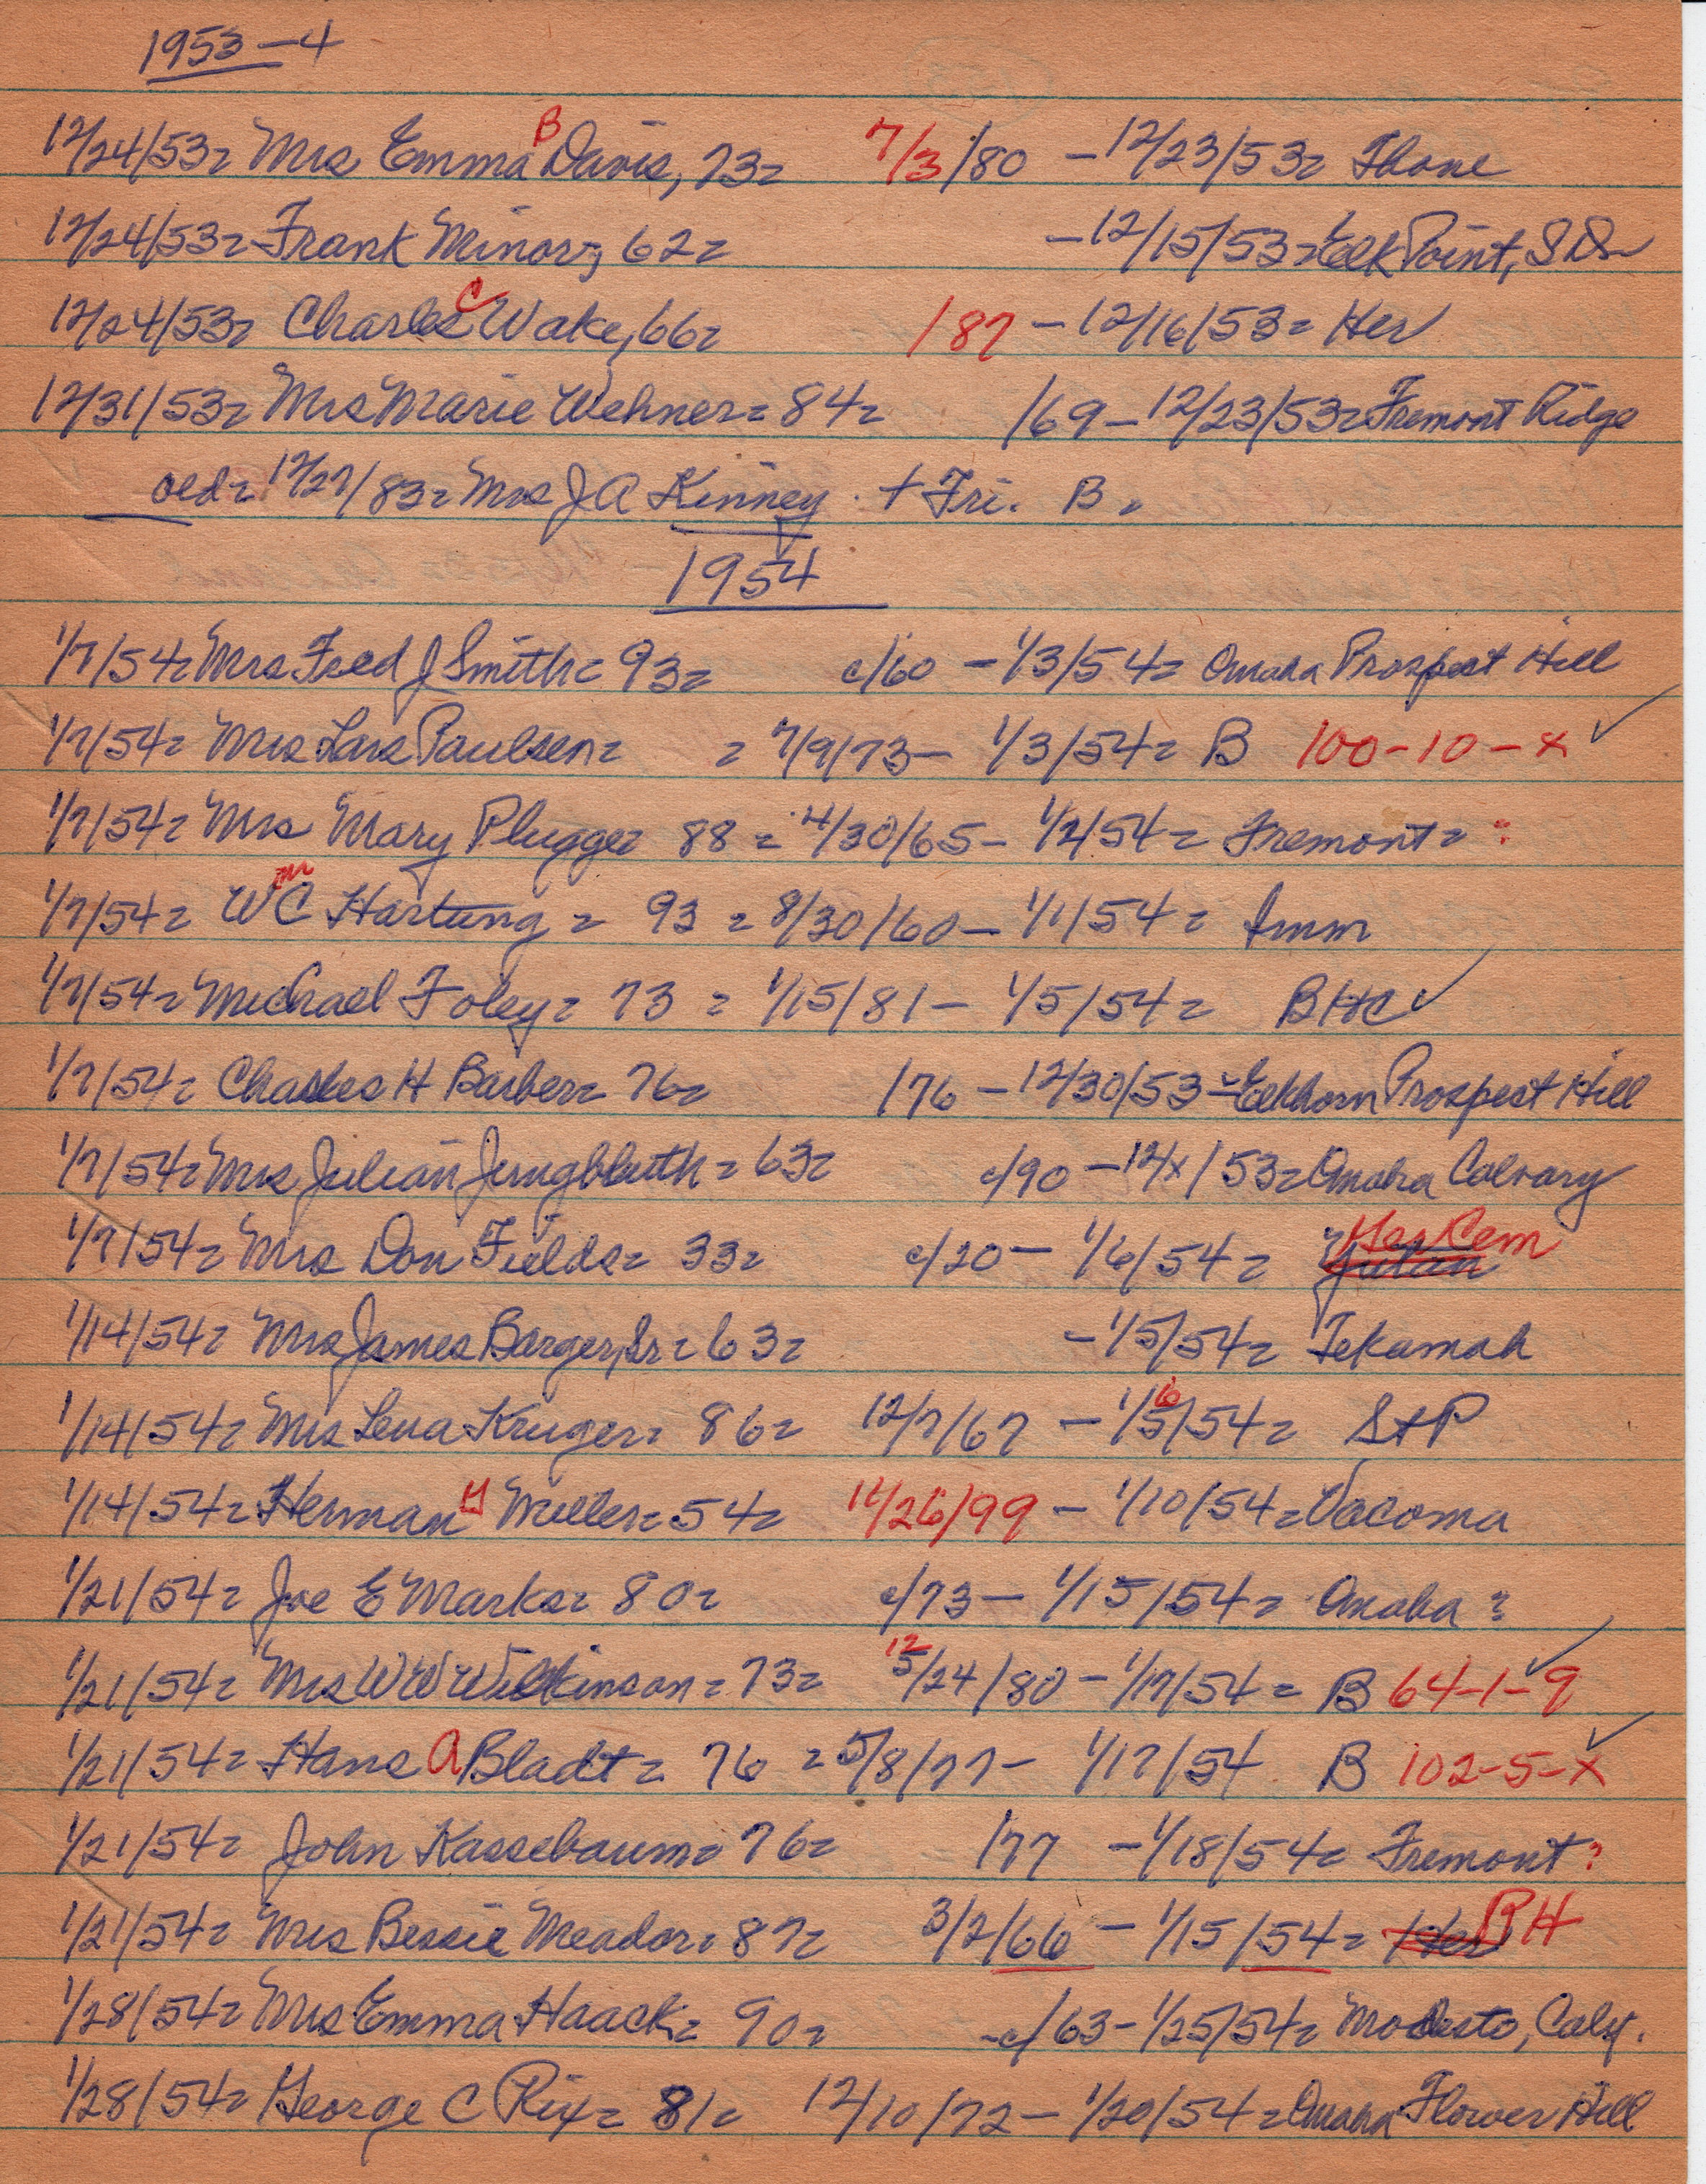 1953-4
12/24/53= Mrs Emma B Davis, 73= 7/3/80 - 12/23/53=
12/24/53= Frank Minor, 62= - 12/15/53= Elk Point, S D
12/24/53= Charles C Wake, 66= /87 - 12/16/53= Her
12/31/53= Mrs Marie Wehner= 84= /69 - 12/23/53= Fremont Ridge
oed= 12/27/83= Mrs J A Kinney. + Fri. B.
1954
1/7/54= Mrs Fred J Smith= 93= c/60 - 1/3/54= Omaha Prospect Hill
1/7/54= Mrs Lars Paulsen= = 7/9/73- 1/3/54= B 100-10-x ✓
1/7/54= Mrs Mary Plugge= 88 = 4/30/65- 1/2/54= Fremont= ?
1/7/54= Wm C Hartung = 93 = 8/30/60- 1/1/54= Imm
1/7/54= Michael Foley= 73 = 1/15/81- 1/5/54= BHC ✓
1/7/54= Charles H Barber= 76= /76 - 12/30/53= Elkhorn Prospect Hill
1/7/54= Mrs Julian Jungbluth= 63= c/90 - 12/x/53= Omaha Calvary
1/7/54= Mrs Don Fields= 33= c/20- 1/6/54= Yutan Her Cem
1/14/54= Mrs James Barger, Sr= 63= - 1/5/54= Tekamah
1/14/54= Mrs Lena Kruger= 86= 12/7/67 - 1/5 6/54= St P
1/14/54= Herman H Miller= 54= 11/26/99 - 1/10/54= Vacoma
1/21/54= Joe E Marks= 80= c/73- 1/15/54= Omaha ?
1/21/54= Mrs W W Wilkinson= 73= 5 12/24/80 - 1/17/54= B 64-1-9 ✓
1/21/54= Hans A Bladt= 76 = 5/8/77- 1/17/54 B 102-5-x ✓
1/21/54= John Kassebaum= 76= /77 - 1/18/54= Fremont ?
1/21/54= Mrs Bessie Meador= 87= 3/2/66 - 1/15/54= Her RH
1/28/54= Mrs Emma Haack= 90= - c/63- 1/25/54= Modesto, Calif.
1/28/54= George C Rix= 81= 12/10/72- 1/20/54= Omaha Flower Hill